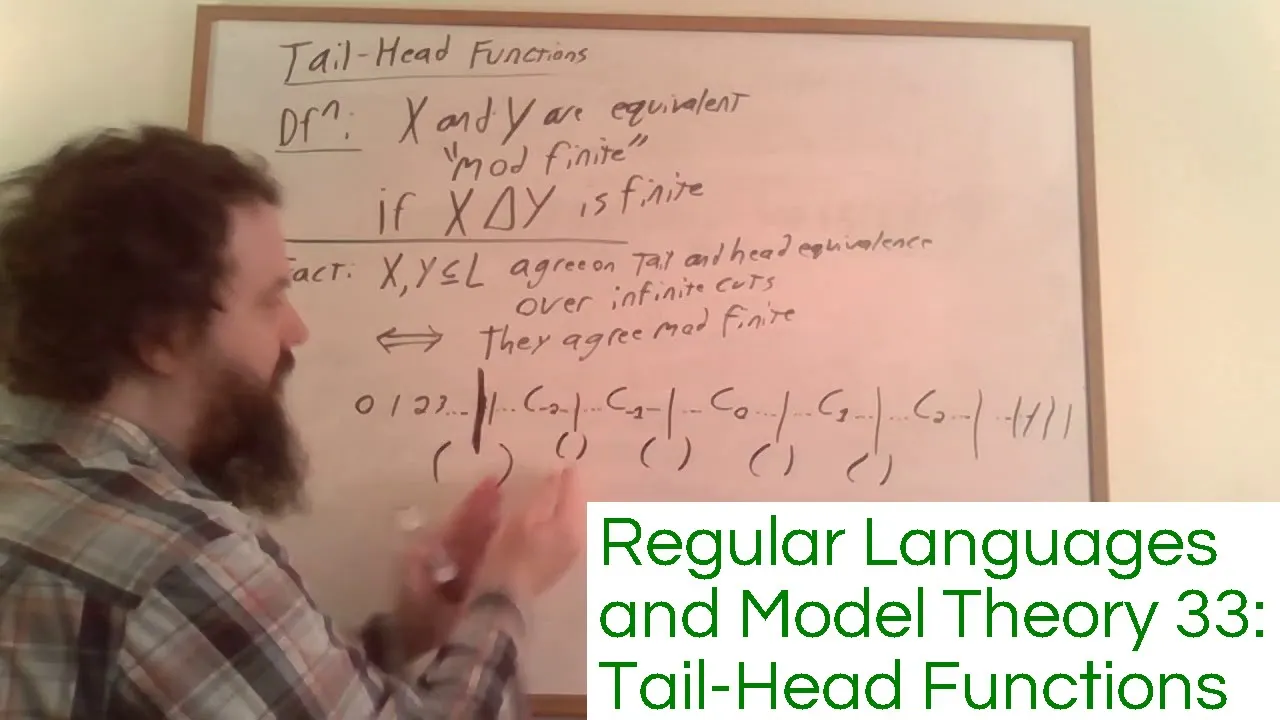 Tail-Head Functions
Dfⁿ: X and Y are equivalent
"mod finite"
if X Δ Y is finite
act: X, Y ⊆ L agree on Tail and head equivalence
over infinite cuts
⟺ They agree mod finite
0 1 2 3 ... | | ... C₋₂ ... | ... C₋₁ ... | ... C₀ ... | ... C₁ ... | ... C₂ ... | ... | | | |
( ) ( ) ( ) ( ) ( )
Regular Languages
and Model Theory 33:
Tail-Head Functions